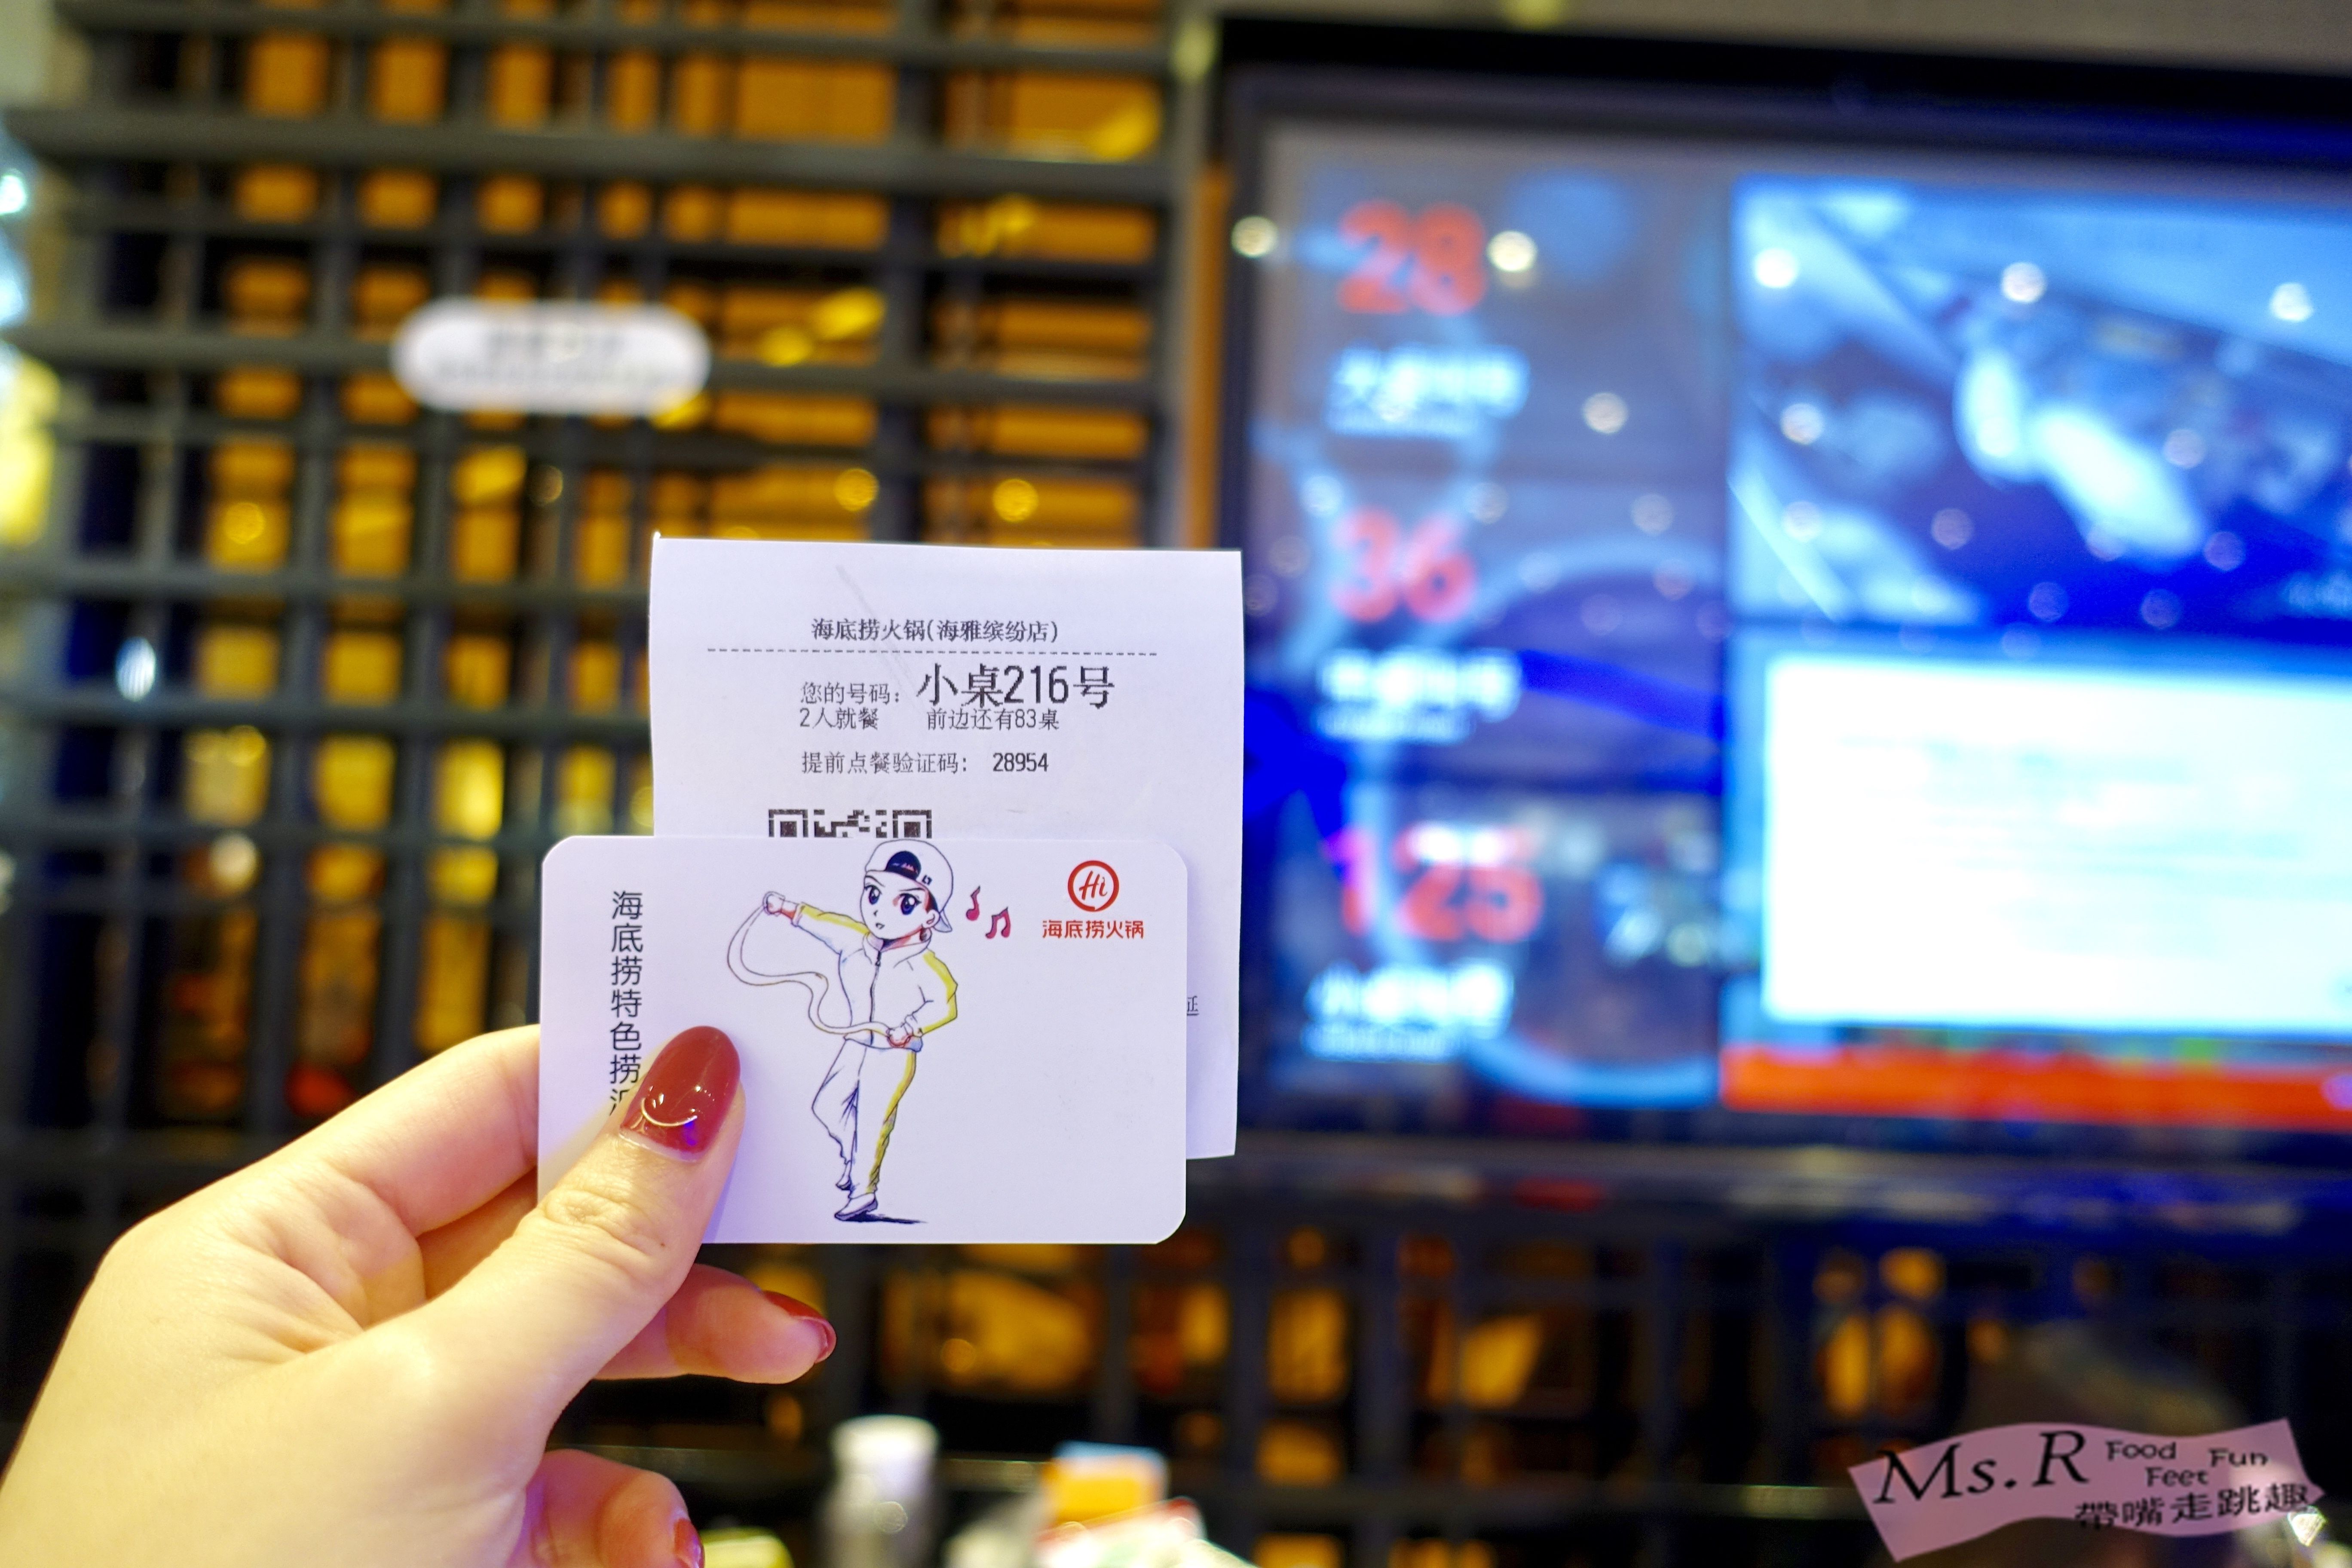 28
36
125
海底捞火锅(海雅缤纷店)
您的号码: 小桌216号
2人就餐 前边还有83桌
提前点餐验证码: 28954
延
海底捞特色捞派
Hi
海底捞火锅
Ms.R Food Fun Feet
帶嘴走跳趣